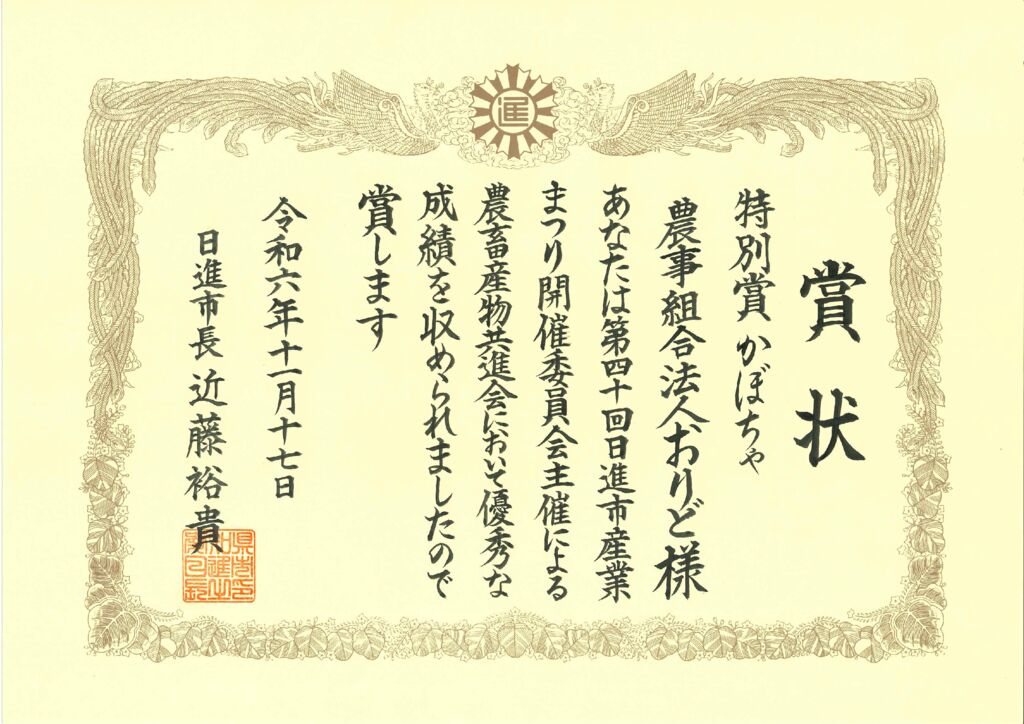 賞状
特別賞 かぼちゃ
農事組合法人おりど様
あなたは第四十回日進市産業
まつり開催委員会主催による
農畜産物共進会において優秀な
成績を収められましたので
賞します
令和六年十一月十七日
日進市長 近藤裕貴
進